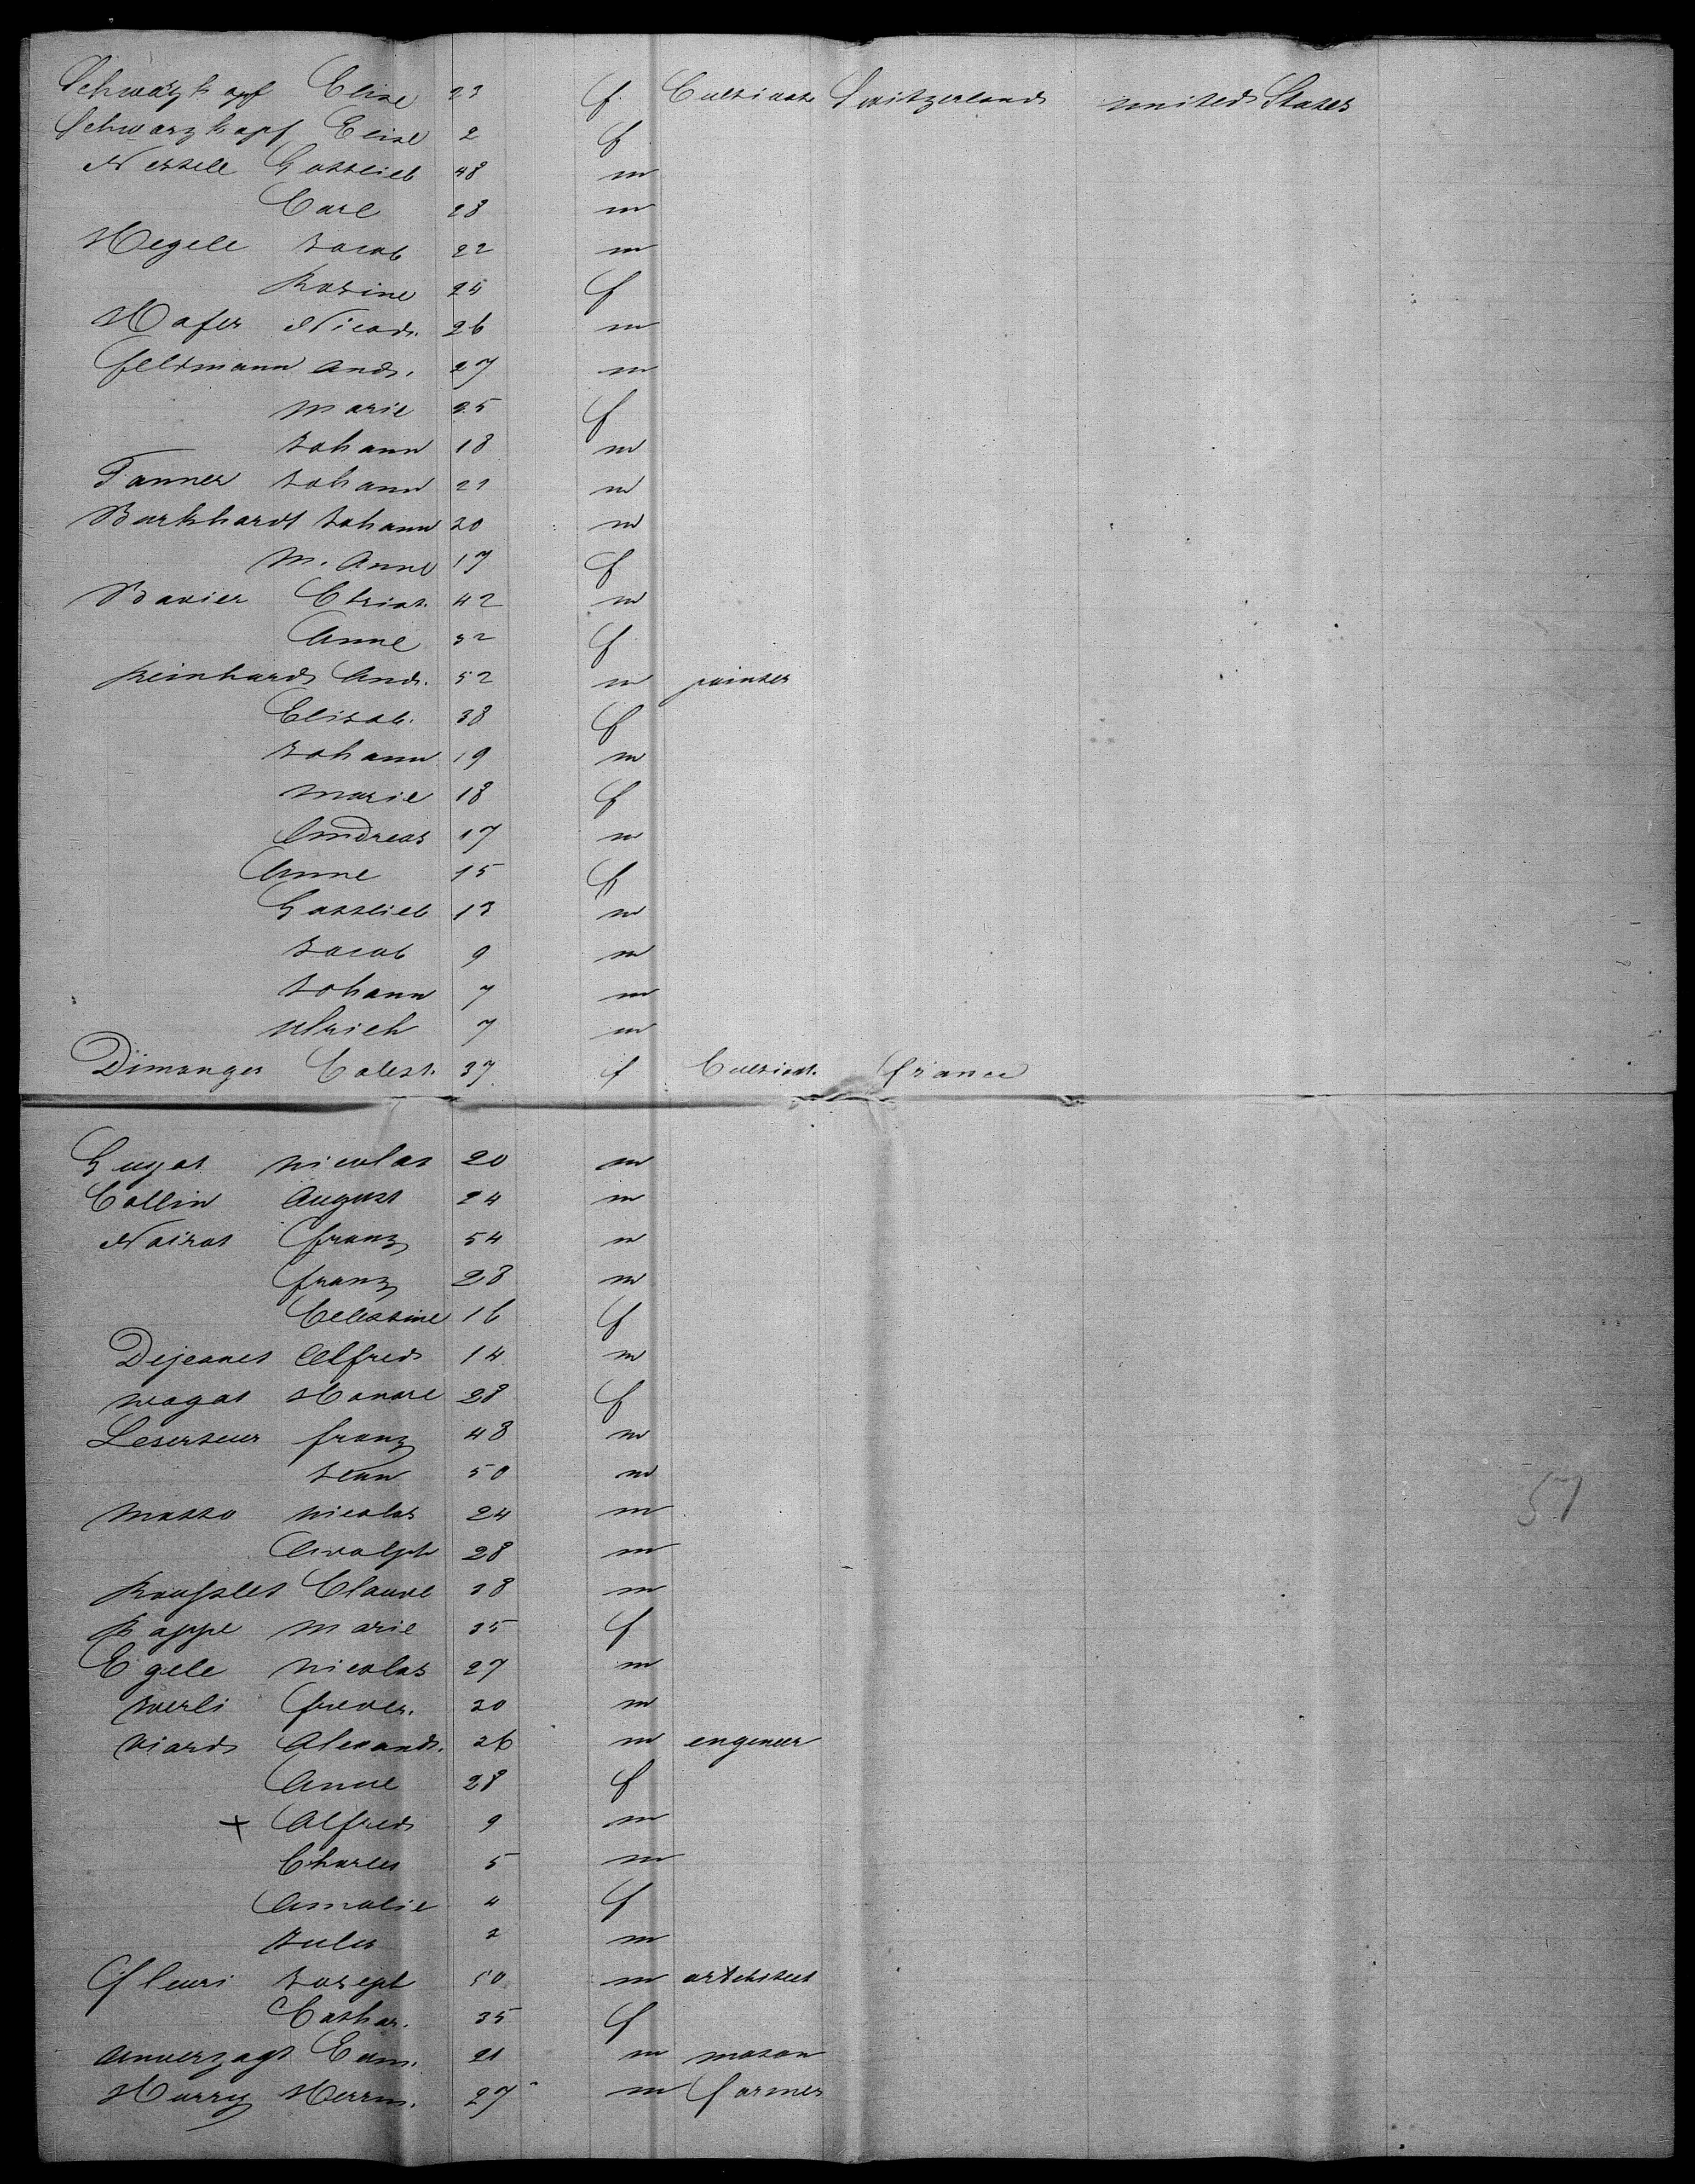 Schwarzkopf Elise 23 f. Cultivat. Switzerland united States
Schwarzkopf Elise 2 f
Nessele Gottlieb 48 m
Carl 28 m
Hegele Jacob 22 m
Rosine 24 f
Hofer Nicod. 26 m
Feldmann And. 27 m
Marie 25 f
Johann 18 m
Tanner Johann 21 m
Burkhardt Johann 20 m
M. Anne 17 f
Bavier Christ. 42 m
Anne 32 f
Reinhard And. 52 m painter
Elisab. 38 f
Johann 19 m
Marie 18 f
Andreas 17 m
Anne 15 f
Gottlieb 13 m
Jacob 9 m
Johann 7 m
Ulrich 7 m
Dimanger Calest. 37 f Cultivat. France
Gugat Nicolas 20 m
Collin August 24 m
Noirot Franz 54 m
Franz 28 m
Celestine 16 f
Dejeanet Alfred 14 m
Magat Honore 28 f
Leserteur Franz 48 m
Jean 50 m
Masso Nicolas 24 m
Adolph 28 m
Rousslet Claude 38 m
Kappe Marie 35 f
Egele Nicolas 27 m
Werli Freder. 20 m
Viard Alexand. 36 m engeneer
Anne 28 f
x Alfred 9 m
Charles 5 m
Amalie 4 f
Jules 2 m
Fleuri Joseph 50 m artchitect
Cathar. 35 f
Unverzagt Edm. 21 m mason
Hurry Herrm. 27 m Farmer
57